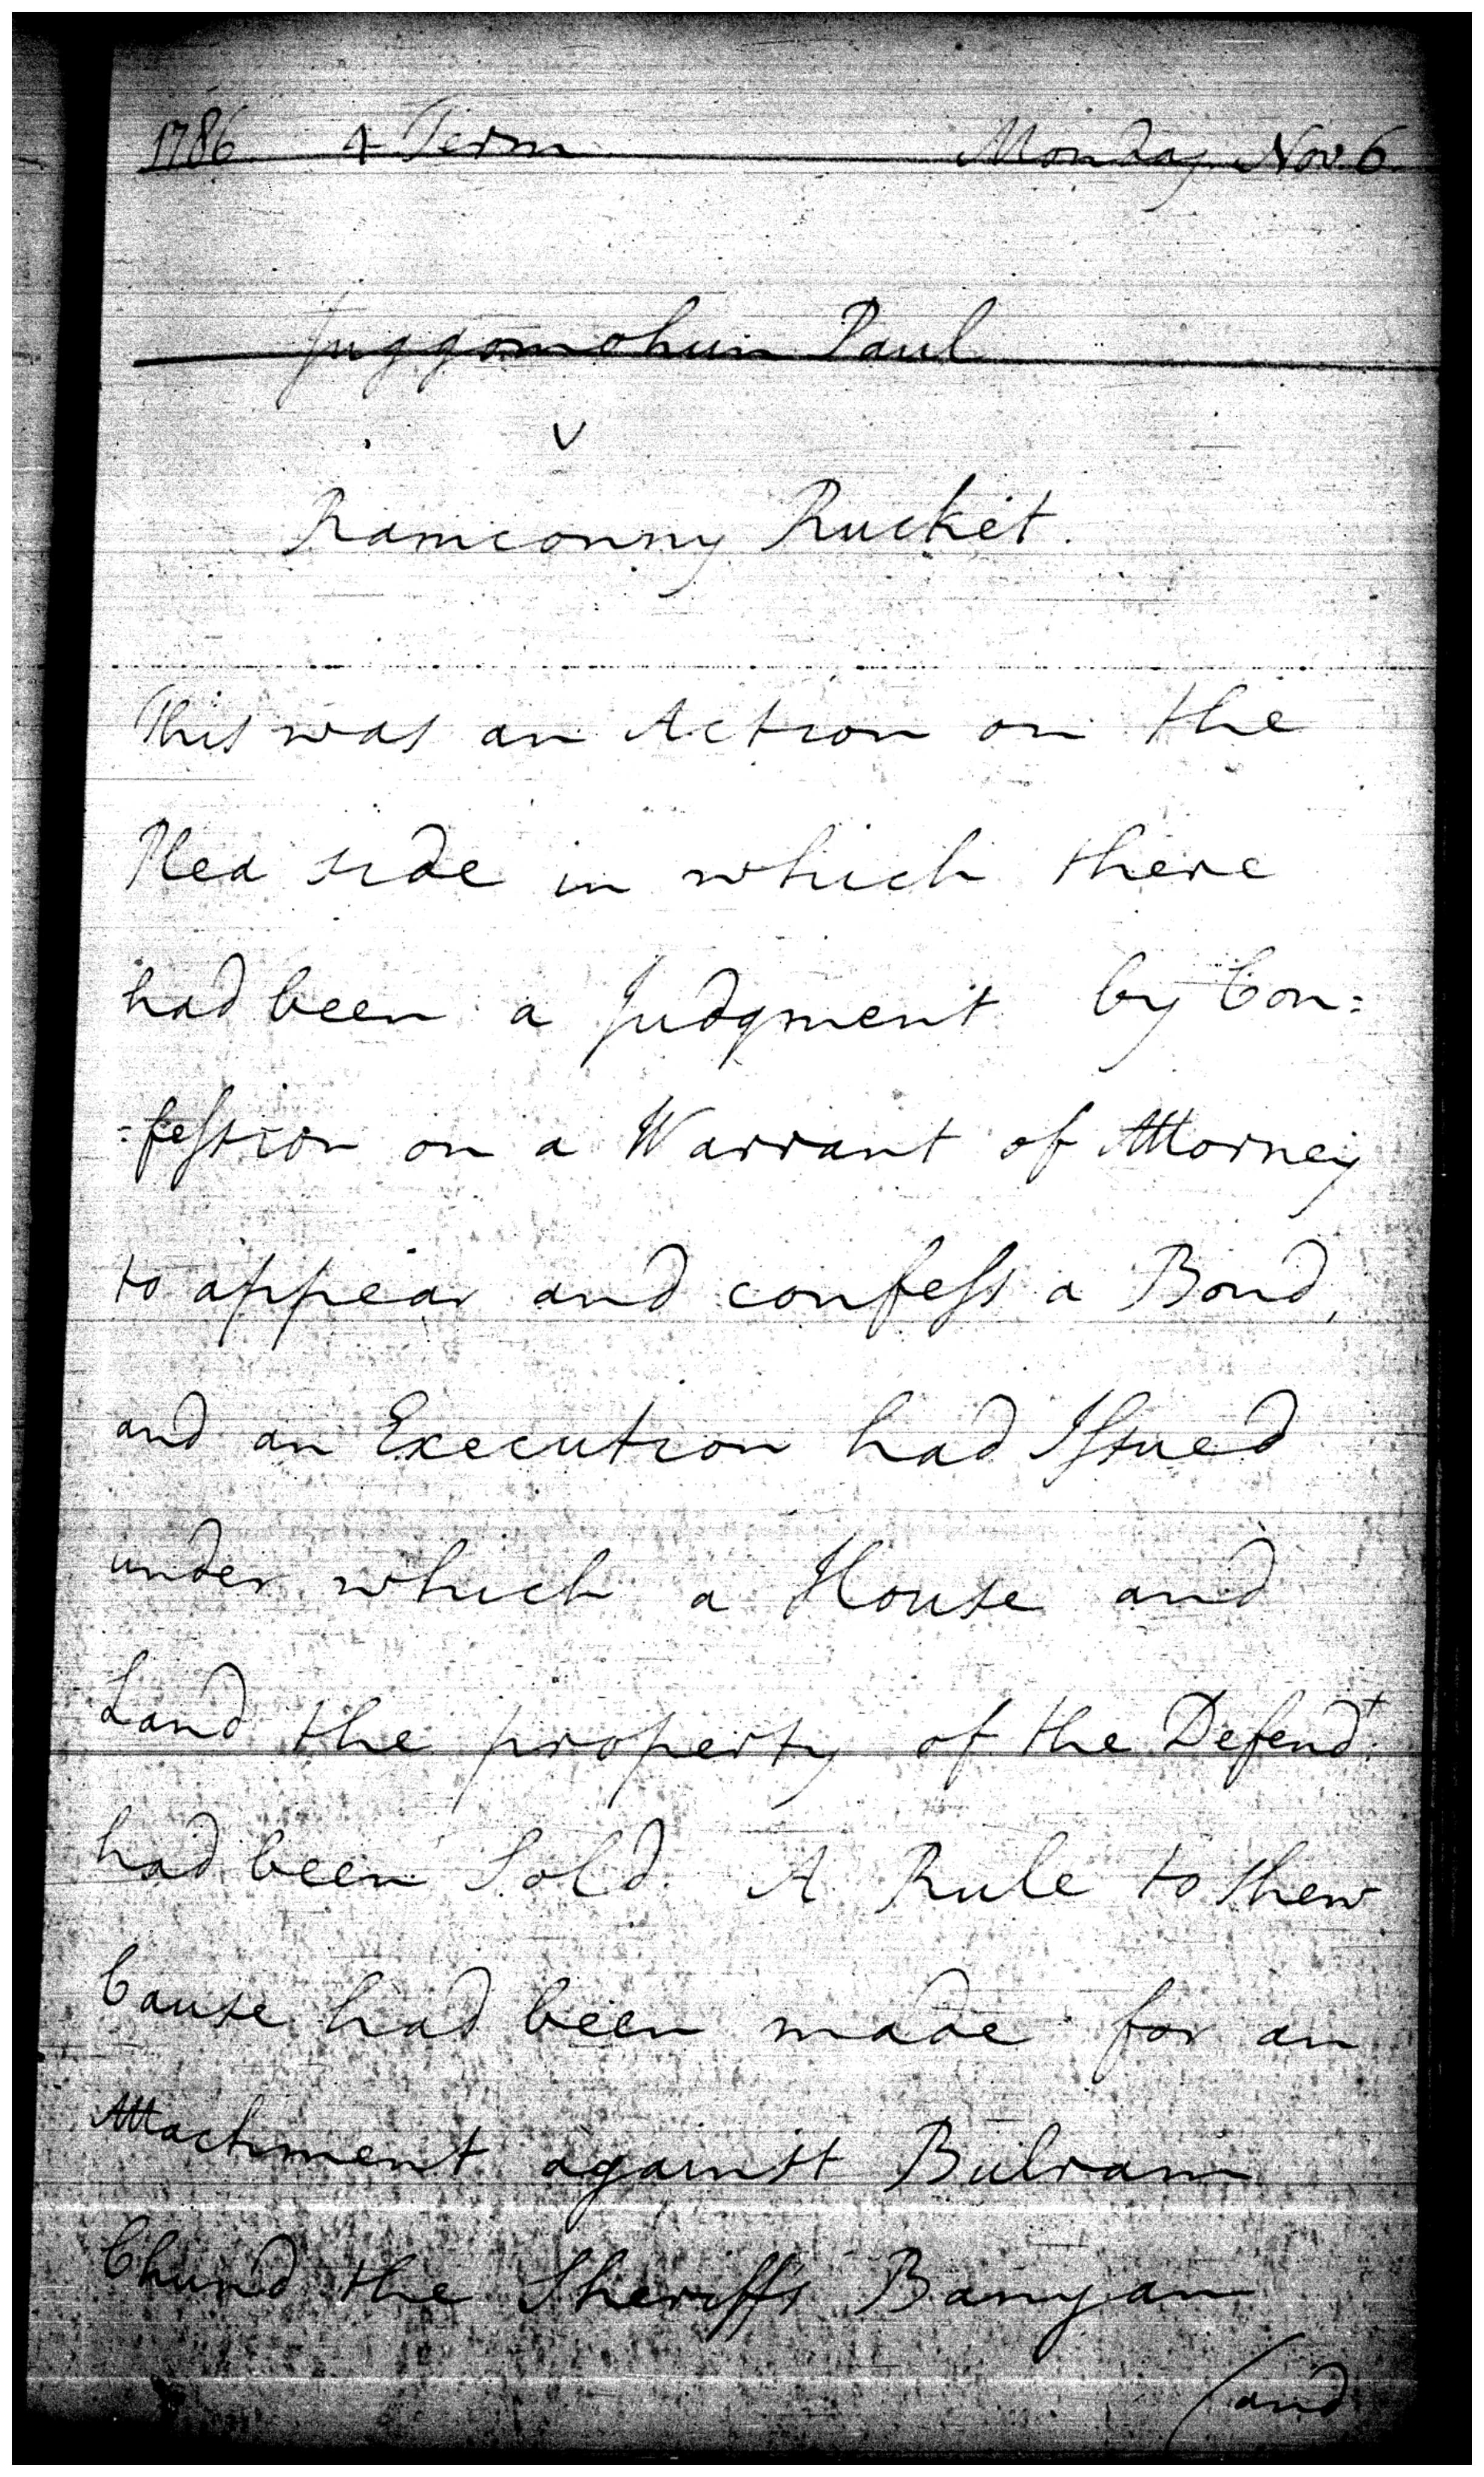 1786 4 Term Monday Nov. 6.
Juggomohun Paul
v
Ramconny Rucket.
This was an Action on the
Plea side in which there
had been a Judgment by Con:
:fession on a Warrant of Attorney
to appear and confess a Bond,
and an Execution had Issued
under which a House and
Land the property of the Defendt.
had been Sold. A Rule to shew
Cause had been made for an
Attachment against Bulram
Chund the Sheriffs Banyan
(and